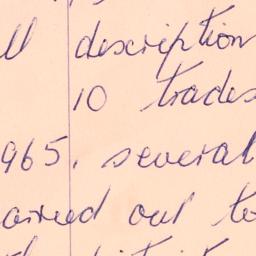 ll description
10 trades
965. several
arried out to